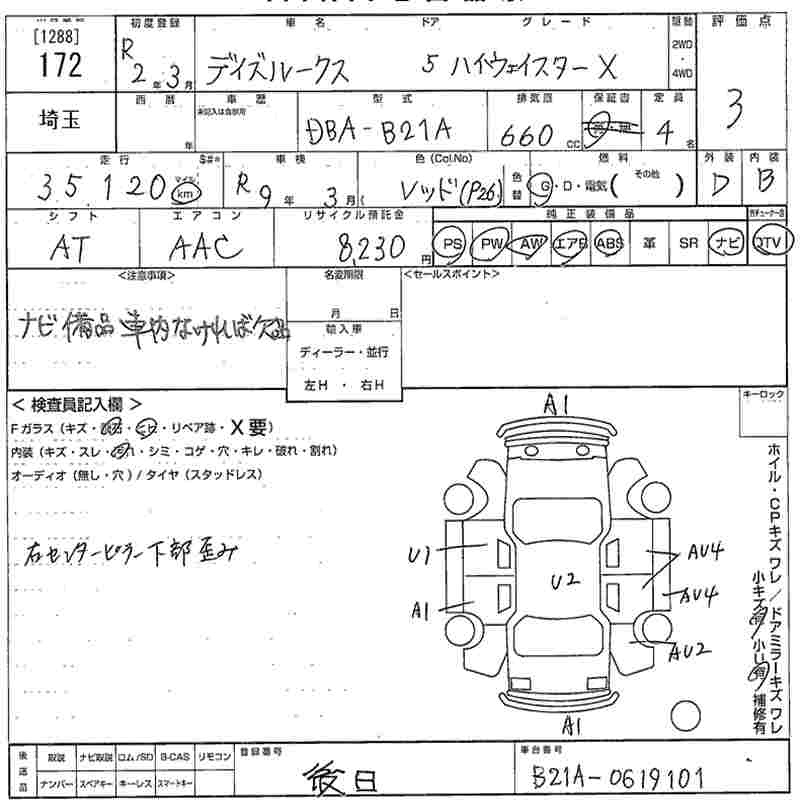 [1288]
172
埼玉
初度登録
R 2年 3月
車名
デイズルークス
ドア
5
グレード
ハイウェイスターX
駆動
2WD
・
4WD
評価点
3
西暦
年
車歴
未記入は自家用
型式
DBA-B21A
排気量
660 CC
保証書
定員
4名
走行
35,120
マイル
km
車検
R 9年 3月
色(Col.No)
レッド(P26)
色替
燃料
G・D・電気( その他 )
外装
D
内装
B
シフト
AT
エアコン
AAC
リサイクル預託金
8,230円
純正装備品
PS PW AW エアB ABS 革 SR ナビ
DTV
<注意事項>
ナビ備品 車内なければ欠品
名変期限
月 日
輸入車
ディーラー・並行
左H ・ 右H
<セールスポイント>
<検査員記入欄>
Fガラス(キズ・ ・ヒビ・リペア跡・X要)
内装(キズ・スレ・汚れ・シミ・コゲ・穴・キレ・破れ・割れ)
オーディオ(無し・穴)/タイヤ(スタッドレス)
右センターピラー下部歪み
キーロック
A1
U1
A1
U2
AU4
AU4
AU2
A1
ホイル・CPキズ ワレ/ドアミラーキズ ワレ
小キズ有 小U有 補修有
後送品
取説 ナビ取説 ロム/SD B-CAS リモコン
ナンバー スペアキー キーレス スマートキー
登録番号
後日
車台番号
B21A-0619101